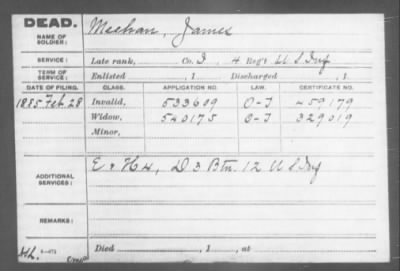 DEAD.
NAME OF SOLDIER: Meehan, James
SERVICE: Late rank, Co. I, 4 Reg't U S Inf
TERM OF SERVICE: Enlisted , 1 Discharged , 1
DATE OF FILING. CLASS. APPLICATION NO. LAW. CERTIFICATE NO.
1885 Feb. 28 Invalid, 533609 O-J 459179
Widow, 540175 O-J 329019
Minor,
ADDITIONAL SERVICES: E & H 4, D 3 Btn. 12 U S Inf
REMARKS:
Died , 1 , at